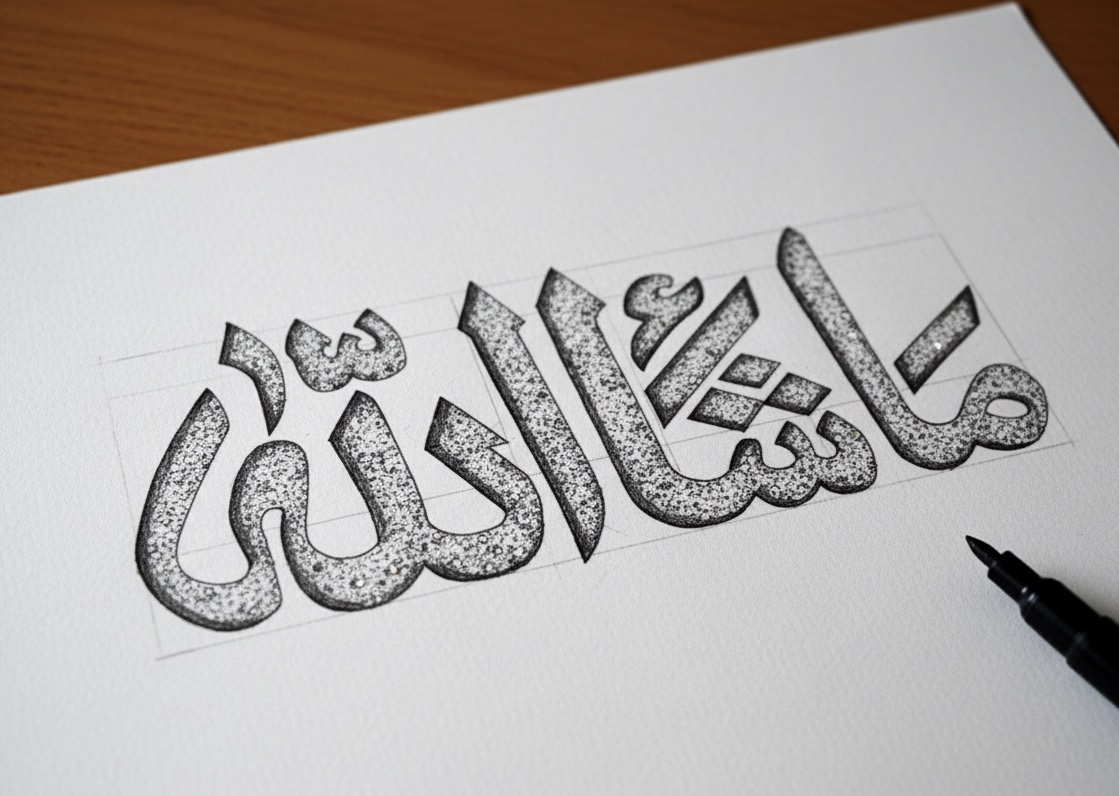 مَا شَاء اللّٰه